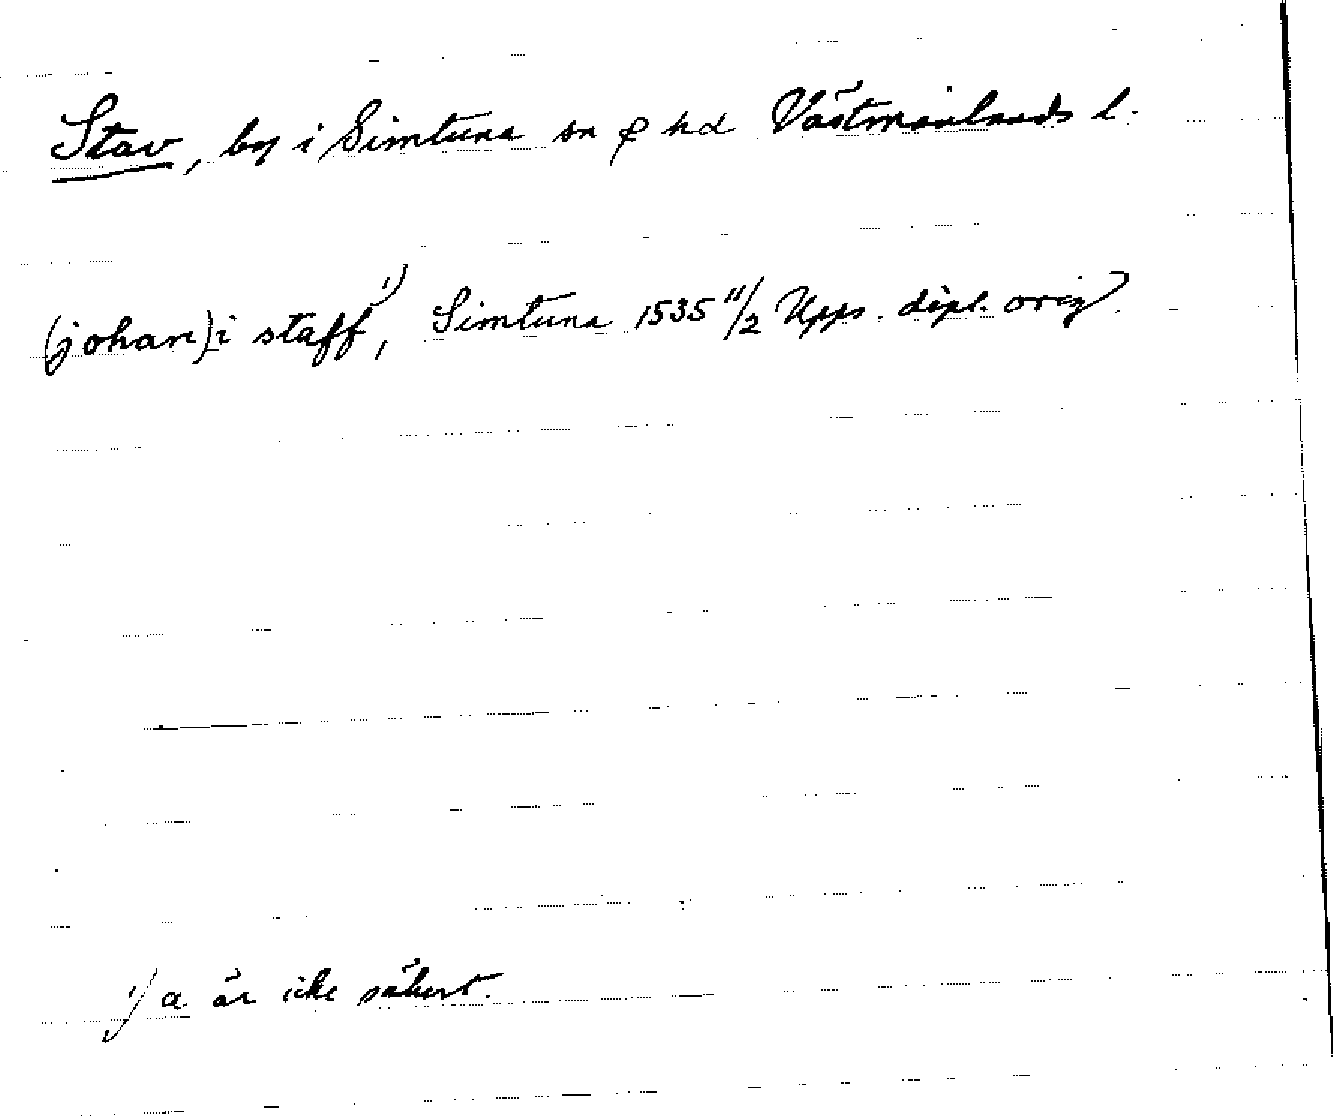 Stav, by i Simtuna sn o hd Västmanlands l.
(johan) i staff 1), Simtuna 1535 11/2 Upps. dipl. orig.
1) a är icke säkert.